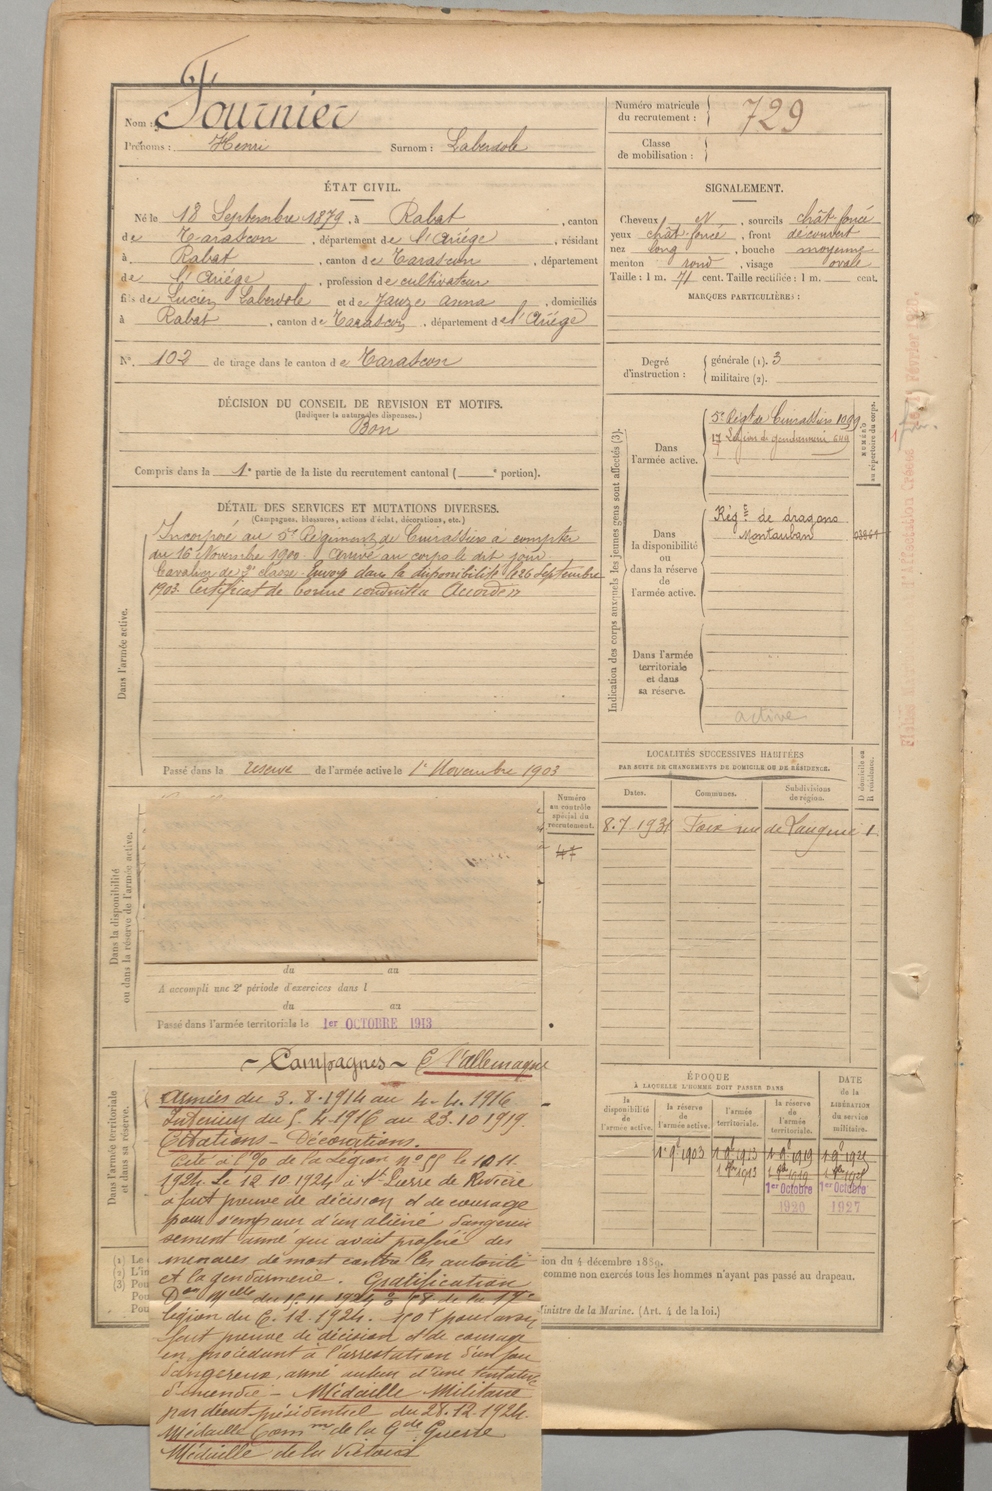 Nom : Fournier
Prénoms : Henri Surnom : Laberdole
ÉTAT CIVIL.
Né le 18 Septembre 1879, à Rabat, canton
de Tarascon, département de l'Ariége, résidant
à Rabat, canton de Tarascon, département
de l'Ariége, profession de cultivateur
fils de Lucien Laberdole et de Jauze Anna, domiciliés
à Rabat, canton de Tarascon, département de l'Ariége
N° 102 de tirage dans le canton de Tarascon
DÉCISION DU CONSEIL DE REVISION ET MOTIFS.
(Indiquer la nature des dispenses.)
Bon
Compris dans la 1e partie de la liste du recrutement cantonal ( e portion).
DÉTAIL DES SERVICES ET MUTATIONS DIVERSES.
(Campagnes, blessures, actions d'éclat, décorations, etc.)
Dans l'armée active.
Incorporé au 5e Régiment de Cuirassiers à compter
du 16 Novembre 1900. Arrivé au corps le dit jour.
Cavalier de 2e classe. Envoyé dans la disponibilité le 26 Septembre
1903. Certificat de bonne conduite Accordé
Passé dans la réserve de l'armée active le 1e Novembre 1903
Dans la disponibilité
ou dans la réserve de l'armée active.
Numéro
au contrôle
spécial du
recrutement.
47
du au
A accompli une 2e période d'exercices dans l
du au
Passé dans l'armée territoriale le 1er OCTOBRE 1913
Dans l'armée territoriale
et dans sa réserve.
~ Campagnes ~ C. l'allemagne
Armées du 3.8.1914 au 4.4.1916
Intérieur du 5.4.1916 au 23.10.1919.
Citations - Décorations.
Cité à l'O/ de la Légion n° 55 le 10.11.
1924. Le 12.10.1924 à St Pierre de Rivière
a fait preuve de décision et de courage
pour s'emparer d'un aliéné dangereu
sement armé qui avait proféré des
menaces de mort contre les autorités
et la gendarmerie. Gratification
légion du 6.12.1924. 50f pour avoir
fait preuve de décision et de courage
en procédant à l'arrestation d'un fou
dangereux, armé auteur d'une tentative
d'incendie - Médaille Militaire
par décret présidentiel du 28.12.1924.
Médaille Comm de la Gde Guerre
Médaille de la Victoire
(1) Le
(2) L'in
(3) Pou
Pou
Pou
ion du 4 décembre 1889.
comme non exercés tous les hommes n'ayant pas passé au drapeau.
Ministre de la Marine. (Art. 4 de la loi.)
Numéro matricule
du recrutement : 729
Classe
de mobilisation :
SIGNALEMENT.
Cheveux et, sourcils chât. foncé
yeux chât. foncé, front découvert
nez long, bouche moyenne
menton rond, visage ovale
Taille : 1 m. 71 cent. Taille rectifiée : 1 m. cent.
MARQUES PARTICULIÈRES :
Degré
d'instruction :
générale (1). 3
militaire (2).
Indication des corps auxquels les jeunes gens sont affectés (3).
NUMÉRO
au répertoire du corps.
Dans
l'armée active.
5e Régt de Cuirassiers 1099
17 Légion de gendarmerie 649
Dans
la disponibilité
ou
dans la réserve
de
l'armée active.
Régt de dragons
Montauban 03861
Dans l'armée
territoriale
et dans
sa réserve.
active
LOCALITÉS SUCCESSIVES HABITÉES
PAR SUITE DE CHANGEMENTS DE DOMICILE OU DE RÉSIDENCE.
D domicile ou
R résidence.
Dates. Communes. Subdivisions
de région.
8.7.1931 Foix rue de
ÉPOQUE
À LAQUELLE L'HOMME DOIT PASSER DANS
DATE
de la
LIBÉRATION
du service
militaire.
la
disponibilité
de
l'armée active.
la réserve
de
l'armée active.
l'armée
territoriale.
la réserve
de
l'armée
territoriale.
1e 9e 1903 1 9e 1913 1 9e 1919
1913
1er Octobre 1er Octobre
1920 1927